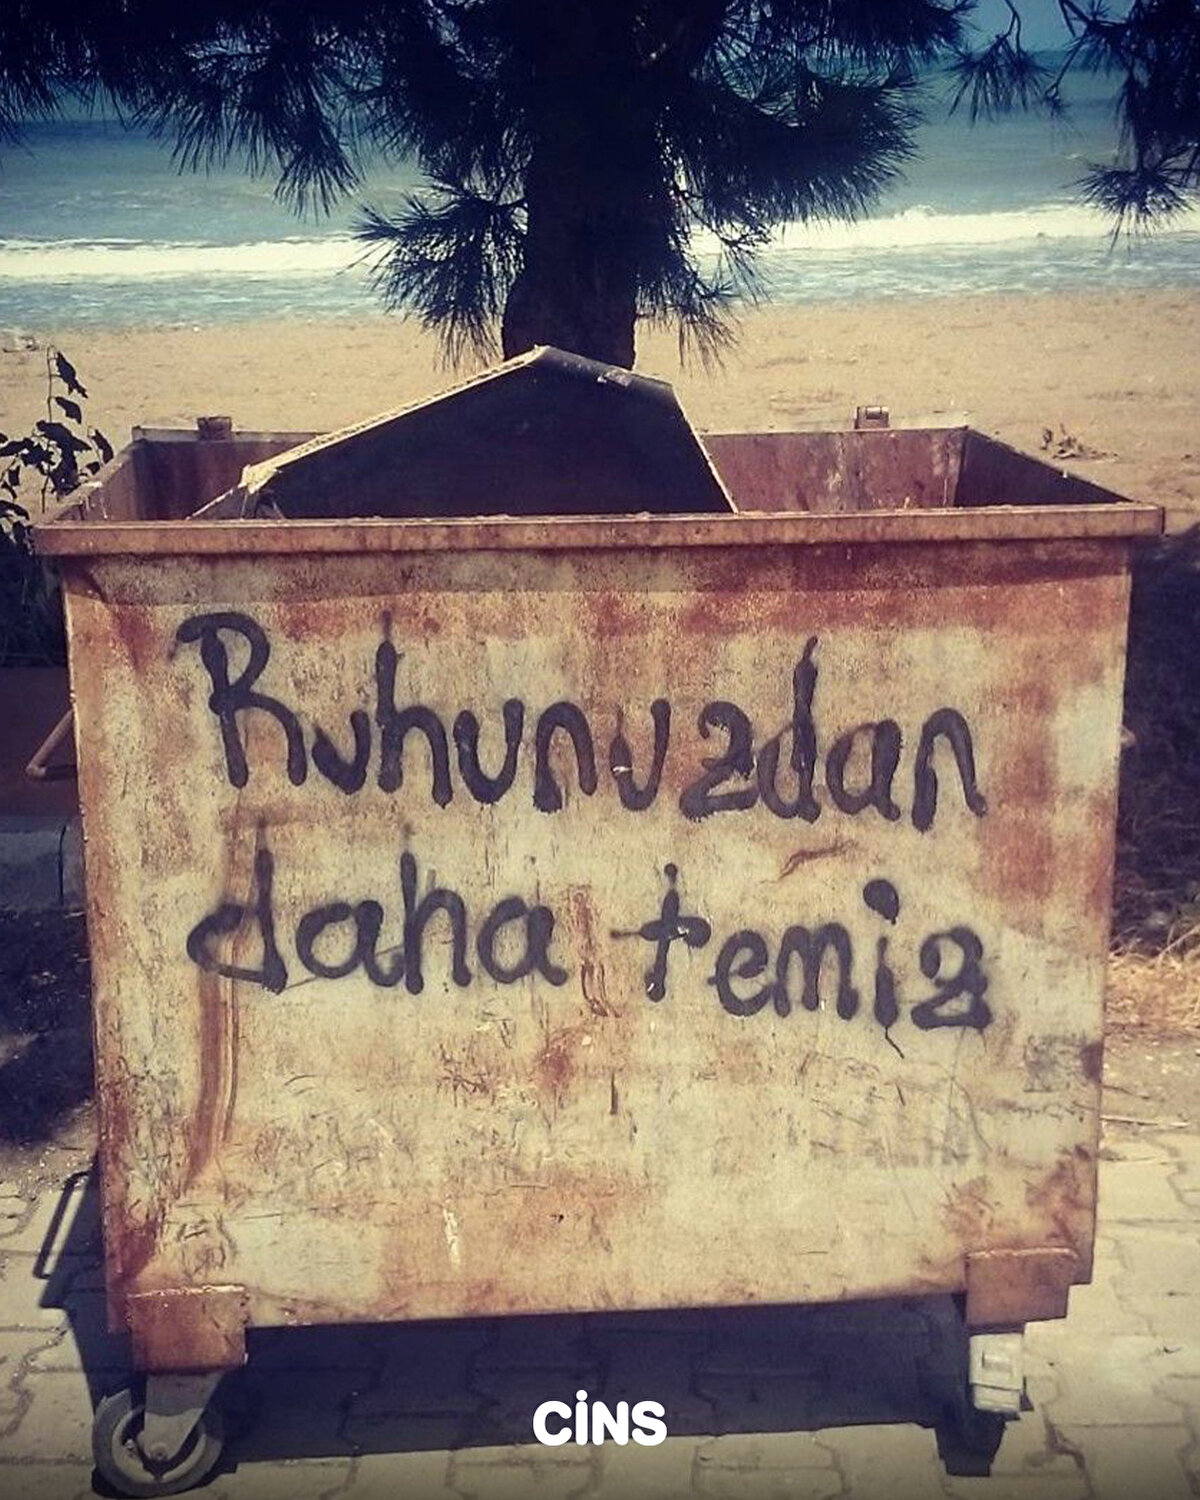 Ruhunuzdan
daha temiz
CİNS